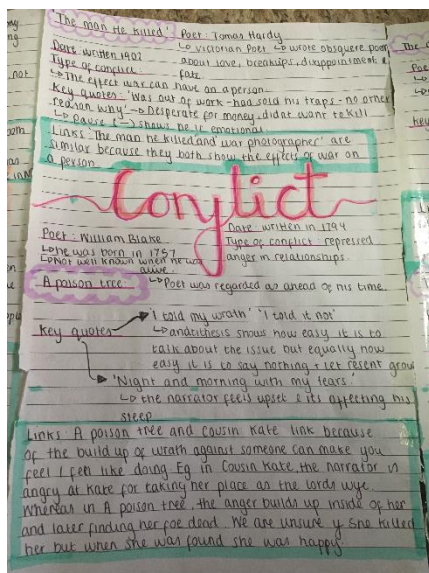 'The man He killed'
Poet: Tomas Hardy
↳ Victorian Poet ↳ wrote obsquere poem
about love, breakups, disappointment &
fate.
Date: written 1902
Type of conflict:
↳ The effect war can have on a person.
Key quotes: 'Was out of work - had sold his traps - no other
reason why' → Desperate for money, didnt want to kill
↳ Pause (-) shows he is emotional.
Links: The man he killed and 'war photographer' are
similar because they both show the effects of war on
a person
Conflict
Poet: William Blake
↳ he was born in 1757
↳ Not well known when he was
alive.
Date: written in 1794
Type of conflict: repressed
anger in relationships.
A poison tree
↳ Poet was regarded as ahead of his time.
Key quotes
'I told my wrath' 'I told it not'
↳ antithesis shows how easy it is to
talk about the issue but equally how
easy it is to say nothing + let resent grow
'Night and morning with my tears'
↳ the narrator feels upset & its affecting his
sleep
Links: A poison tree and cousin Kate link because
of the build up of wrath against someone can make you
feel I feh like doing. Eg in Cousin Kate, the narrator is
angry at Kate for taking her place as the lords wife.
Whereas in A poison tree, the anger builds up inside of her
and later finding her foe dead. We are unsure if she killed
her but when she was found she was happy.